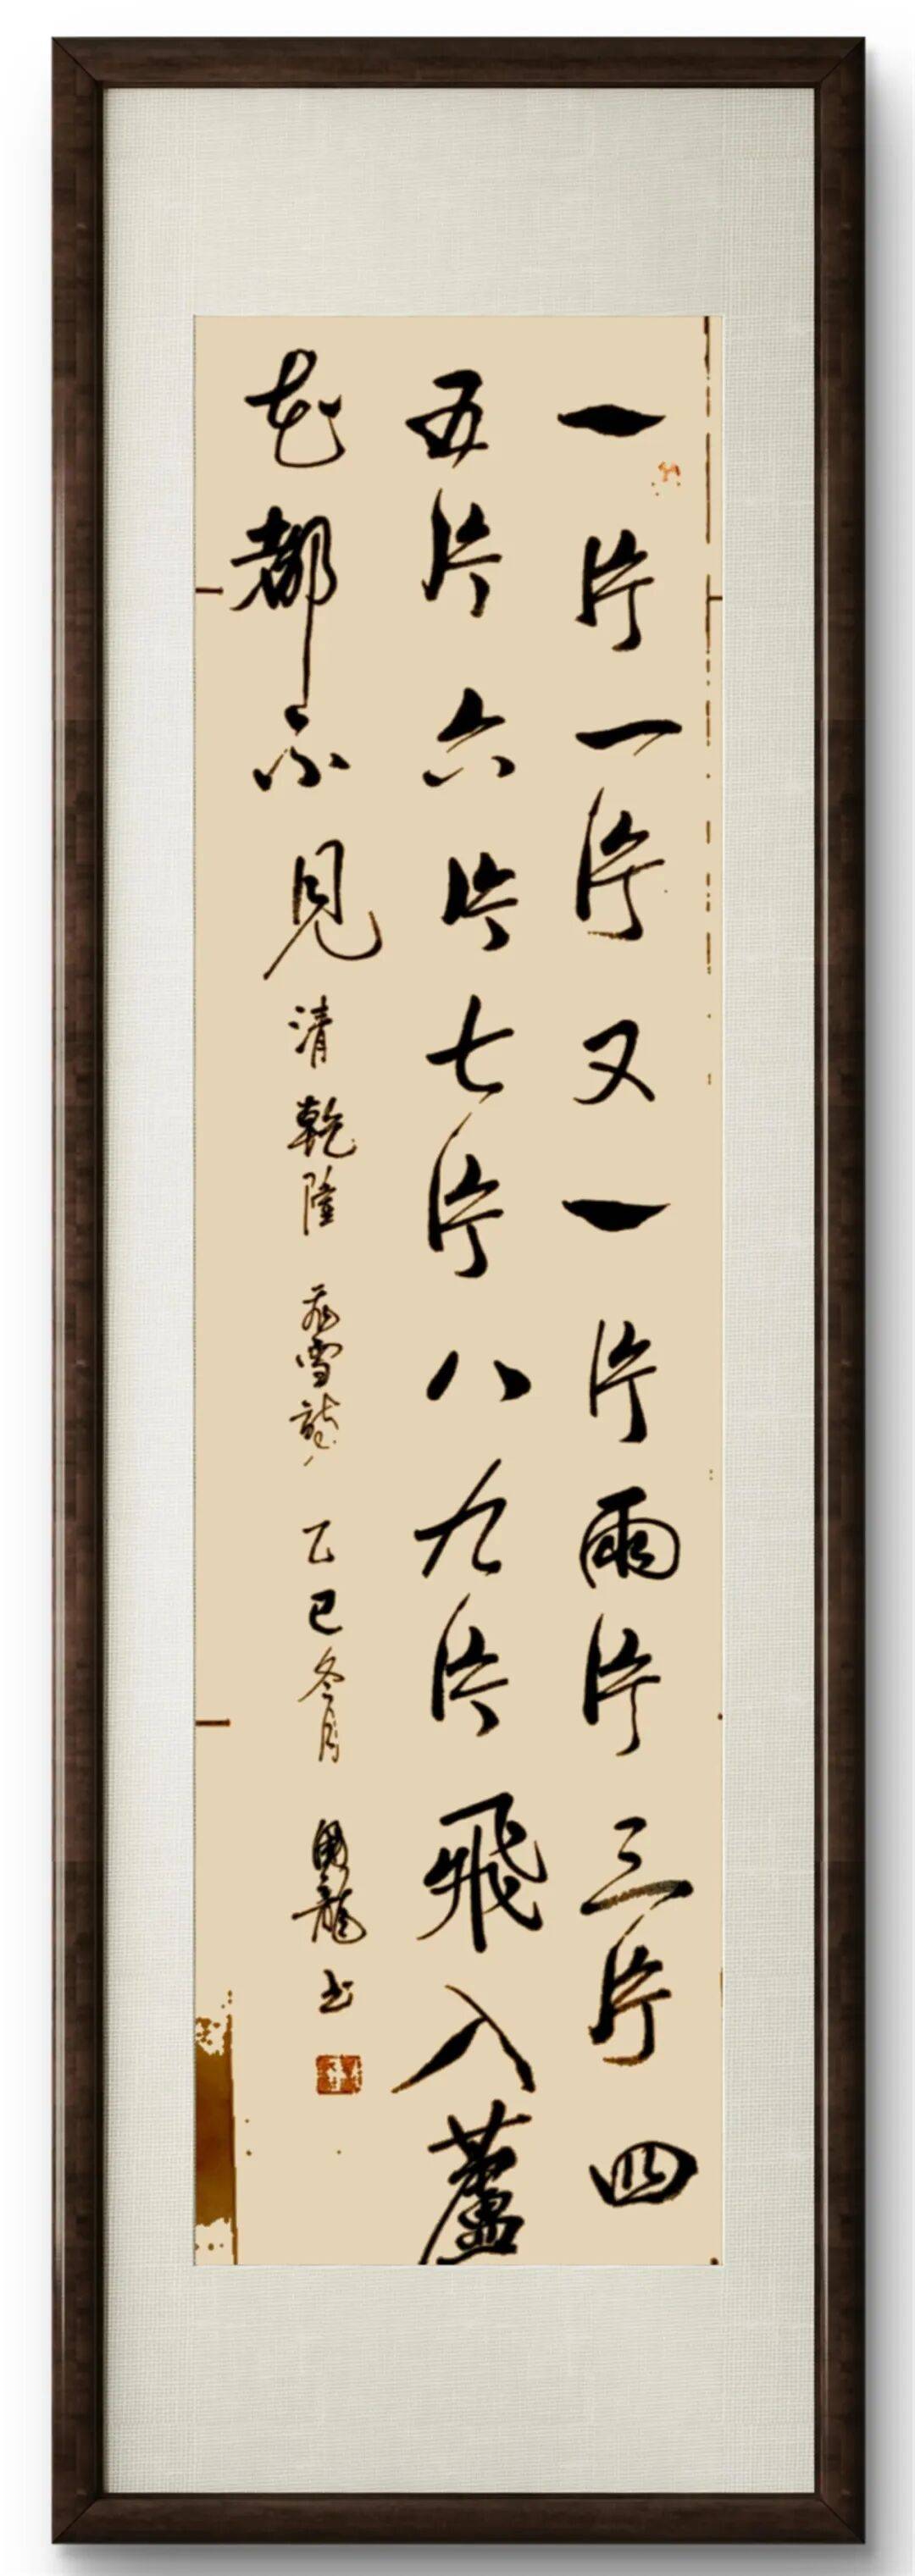 一片一片又一片兩片三片四
五片六片七片八九片飛入蘆
花都不見 清乾隆 雪 乙巳冬月 龍书